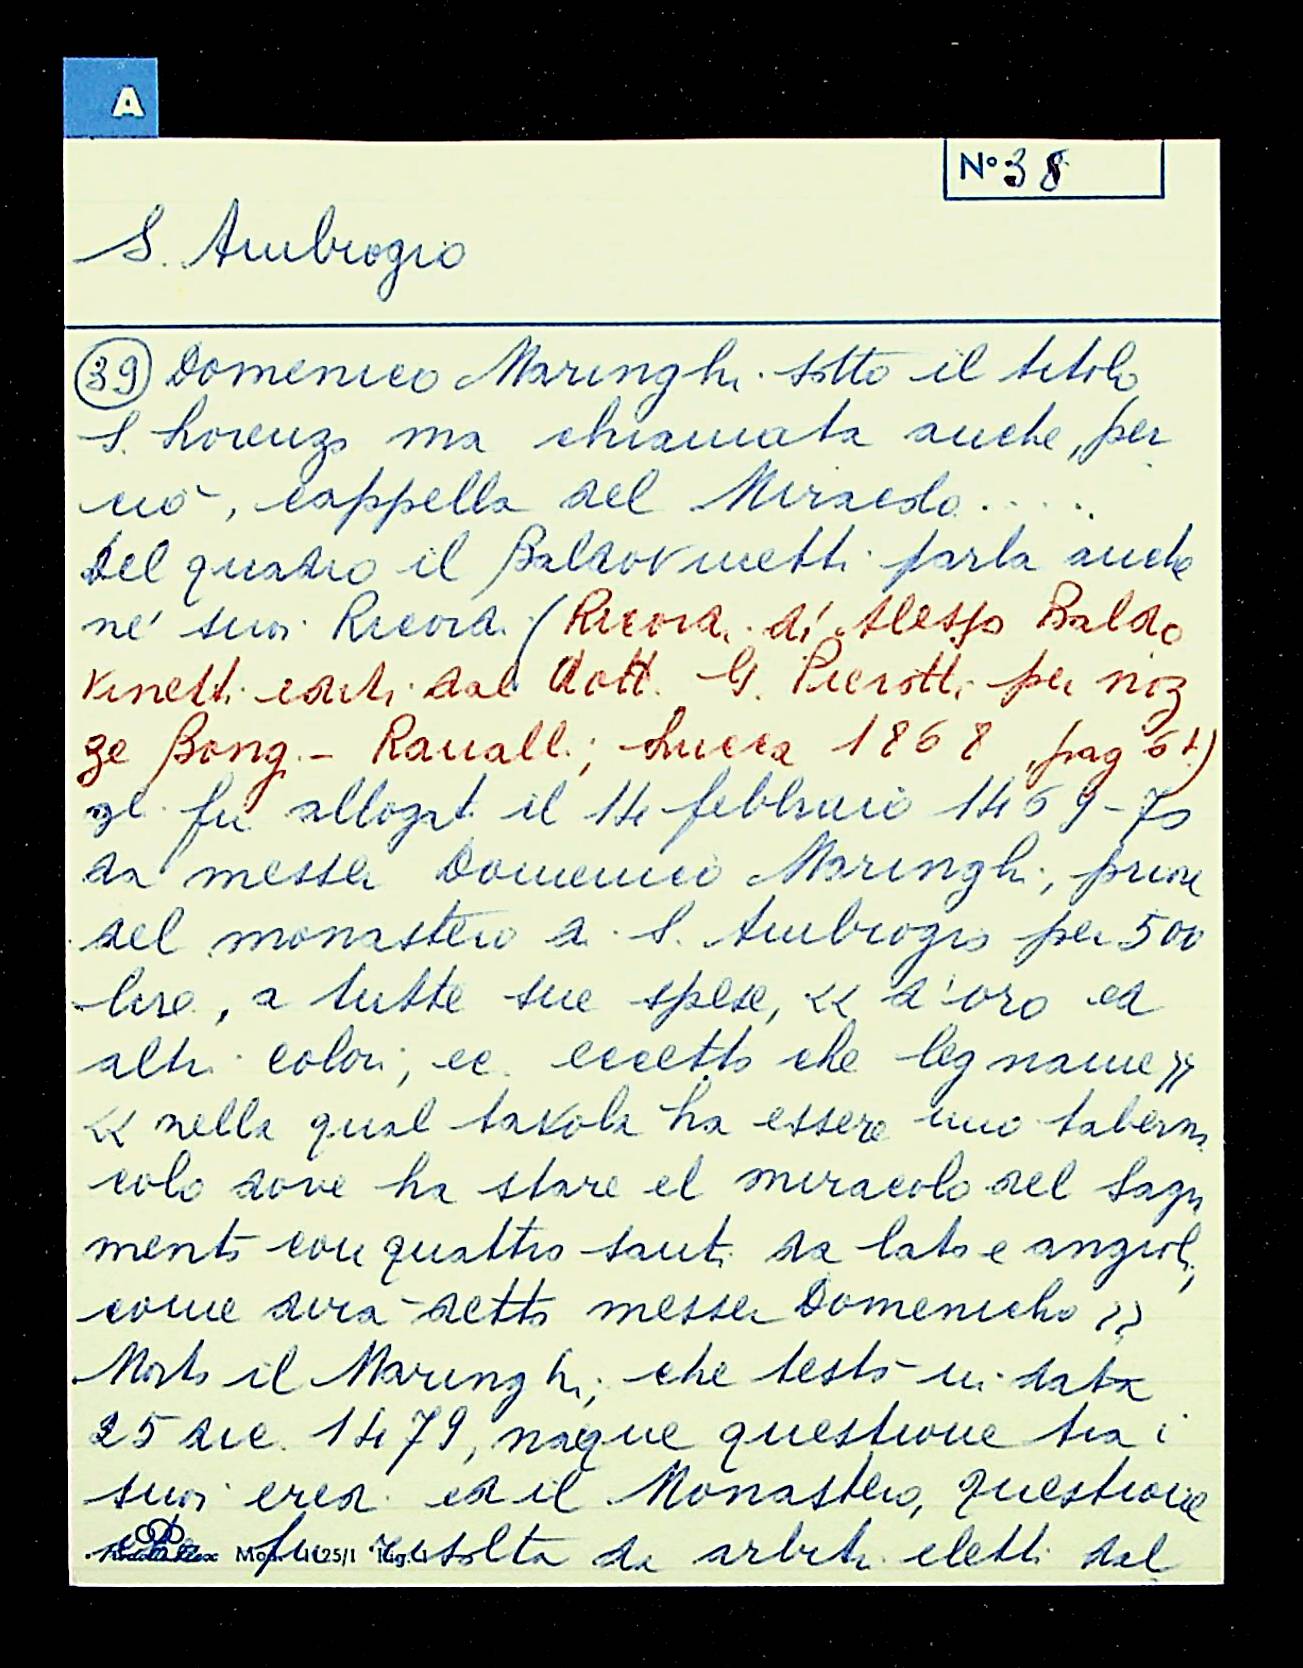 A
N° 38
S. Ambrogio
39 Domenico Maringhi sotto il titolo
S. Lorenzo ma chiamata anche, per
ciò, cappella del Miracolo .....
Del quadro il Baldovinetti parla anche
ne' suoi Ricordi (Ricordi di Alesso Baldo
vinetti editi dal Dott. G. Pierotti per noz
ze Bongi - Ranalli; Lucca 1868, pag 61)
gli fu allogat. il 14 febbraio 1469-70
da messer Domenico Maringhi, priore
del monastero di S. Ambrogio per 500
lire, a tutte sue spese, << d'oro ed
altri colori, ec. eccetto che legname >>
<< nella qual tavola ha essere uno taberna
colo dove ha stare el miracolo del Sagra
mento con quattro santi da lato e angioli,
come dirà detto messer Domenicho >>
Morto il Maringhi, che testò in data
25 dic. 1479, naque questione tra i
suoi eredi ed il Monastero, questione
che fu risolta da arbitri eletti dal